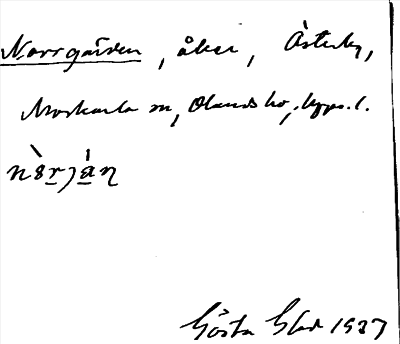 Norrgården, åker, Österby,
Morkarla sn, Olands hd, Upps. l.
nòrján
Gösta Blad 1937